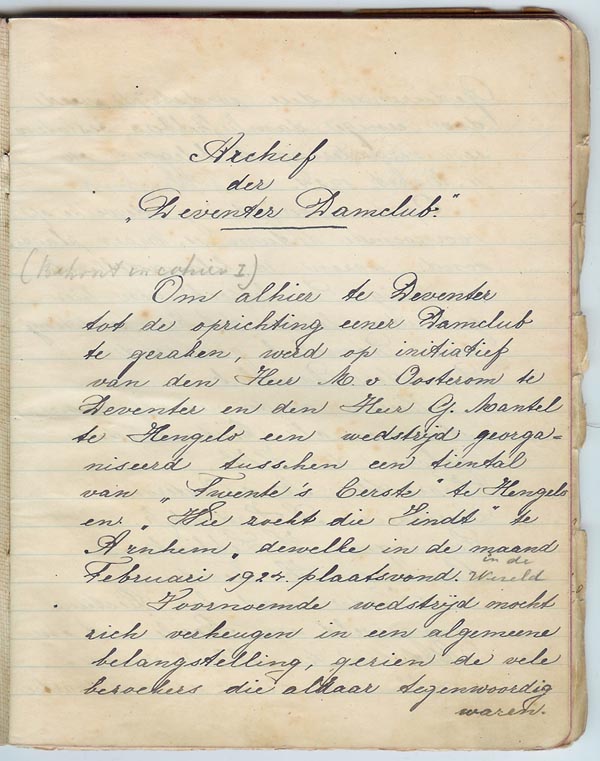 Archief
der
„Deventer Damclub."
(Behoort in cahier I.)
Om alhier te Deventer
tot de oprichting eener Damclub
te geraken, werd op initiatief
van den Heer M. v Oosterom te
Deventer en den Heer G. Mantel
te Hengelo een wedstrijd georga-
niseerd tusschen een tiental
van „Twente's Eerste" te Hengelo
en „Wie zoekt die Vindt" te
Arnhem, dewelke in de maand
Februari 1924. plaatsvond. in de Wereld
Voornoemde wedstrijd mocht
zich verheugen in een algemeene
belangstelling, gezien de vele
bezoekers die aldaar tegenwoordig
waren.